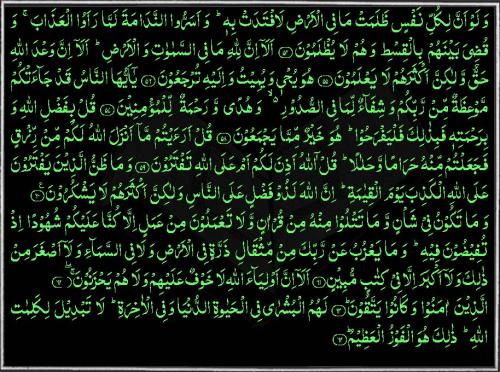 وَلَوْ اَنَّ لِكُلِّ نَفْسٍ ظَلَمَتْ مَا فِی الْاَرْضِ لَافْتَدَتْ بِهٖ ؕ وَ اَسَرُّوا النَّدَامَةَ لَمَّا رَاَوُا الْعَذَابَ ۚ وَ
قُضِیَ بَیْنَهُمْ بِالْقِسْطِ وَ هُمْ لَا یُظْلَمُوْنَ ﴿۵۴﴾ اَلَاۤ اِنَّ لِلّٰهِ مَا فِی السَّمٰوٰتِ وَ الْاَرْضِ ؕ اَلَاۤ اِنَّ وَعْدَ اللهِ
حَقٌّ وَّ لٰكِنَّ اَكْثَرَهُمْ لَا یَعْلَمُوْنَ ﴿۵۵﴾ هُوَ یُحْیٖ وَ یُمِیْتُ وَ اِلَیْهِ تُرْجَعُوْنَ ﴿۵۶﴾ یٰۤاَیُّهَا النَّاسُ قَدْ جَآءَتْكُمْ
مَّوْعِظَةٌ مِّنْ رَّبِّكُمْ وَ شِفَآءٌ لِّمَا فِی الصُّدُوْرِ ۙ۬ وَ هُدًی وَّ رَحْمَةٌ لِّلْمُؤْمِنِیْنَ ﴿۵۷﴾ قُلْ بِفَضْلِ اللهِ وَ
بِرَحْمَتِهٖ فَبِذٰلِكَ فَلْیَفْرَحُوْا ؕ هُوَ خَیْرٌ مِّمَّا یَجْمَعُوْنَ ﴿۵۸﴾ قُلْ اَرَءَیْتُمْ مَّاۤ اَنْزَلَ اللهُ لَكُمْ مِّنْ رِّزْقٍ
فَجَعَلْتُمْ مِّنْهُ حَرَامًا وَّ حَلٰلًا ؕ قُلْ آٰللهُ اَذِنَ لَكُمْ اَمْ عَلَی اللهِ تَفْتَرُوْنَ ﴿۵۹﴾ وَ مَا ظَنُّ الَّذِیْنَ یَفْتَرُوْنَ
عَلَی اللهِ الْكَذِبَ یَوْمَ الْقِیٰمَةِ ؕ اِنَّ اللهَ لَذُوْ فَضْلٍ عَلَی النَّاسِ وَ لٰكِنَّ اَكْثَرَهُمْ لَا یَشْكُرُوْنَ ﴿۶۰﴾
وَ مَا تَكُوْنُ فِیْ شَاْنٍ وَّ مَا تَتْلُوْا مِنْهُ مِنْ قُرْاٰنٍ وَّ لَا تَعْمَلُوْنَ مِنْ عَمَلٍ اِلَّا كُنَّا عَلَیْكُمْ شُهُوْدًا اِذْ
تُفِیْضُوْنَ فِیْهِ ؕ وَ مَا یَعْزُبُ عَنْ رَّبِّكَ مِنْ مِّثْقَالِ ذَرَّةٍ فِی الْاَرْضِ وَ لَا فِی السَّمَآءِ وَ لَاۤ اَصْغَرَ مِنْ
ذٰلِكَ وَ لَاۤ اَكْبَرَ اِلَّا فِیْ كِتٰبٍ مُّبِیْنٍ ﴿۶۱﴾ اَلَاۤ اِنَّ اَوْلِیَآءَ اللهِ لَا خَوْفٌ عَلَیْهِمْ وَ لَا هُمْ یَحْزَنُوْنَ ﴿۶۲﴾
الَّذِیْنَ اٰمَنُوْا وَ كَانُوْا یَتَّقُوْنَ ﴿۶۳﴾ لَهُمُ الْبُشْرٰی فِی الْحَیٰوةِ الدُّنْیَا وَ فِی الْاٰخِرَةِ ؕ لَا تَبْدِیْلَ لِكَلِمٰتِ
اللهِ ؕ ذٰلِكَ هُوَ الْفَوْزُ الْعَظِیْمُ ﴿۶۴﴾